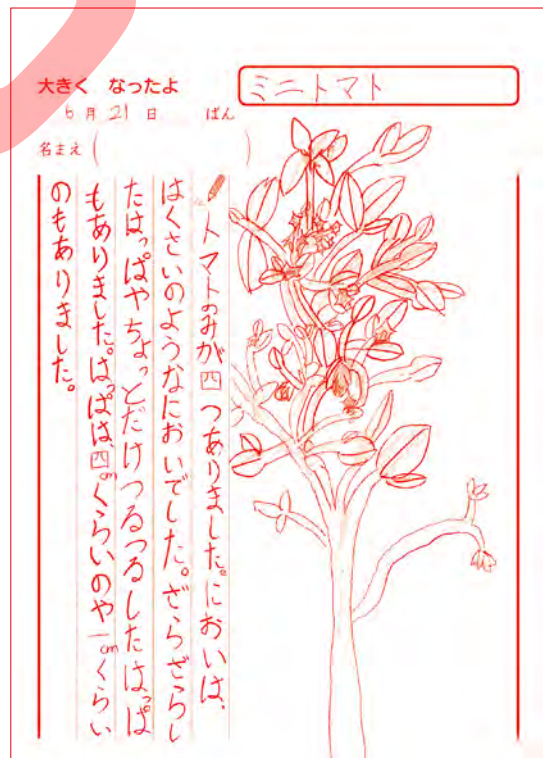 大きく なったよ
ミニトマト
6月21日 ばん
名まえ( )
トマトのみが四つありました。においは、
はくさいのようなにおいでした。ざらざらし
たはっぱやちょっとだけつるつるしたはっぱ
もありました。はっぱは、四cmくらいのや一cmくらい
のもありました。